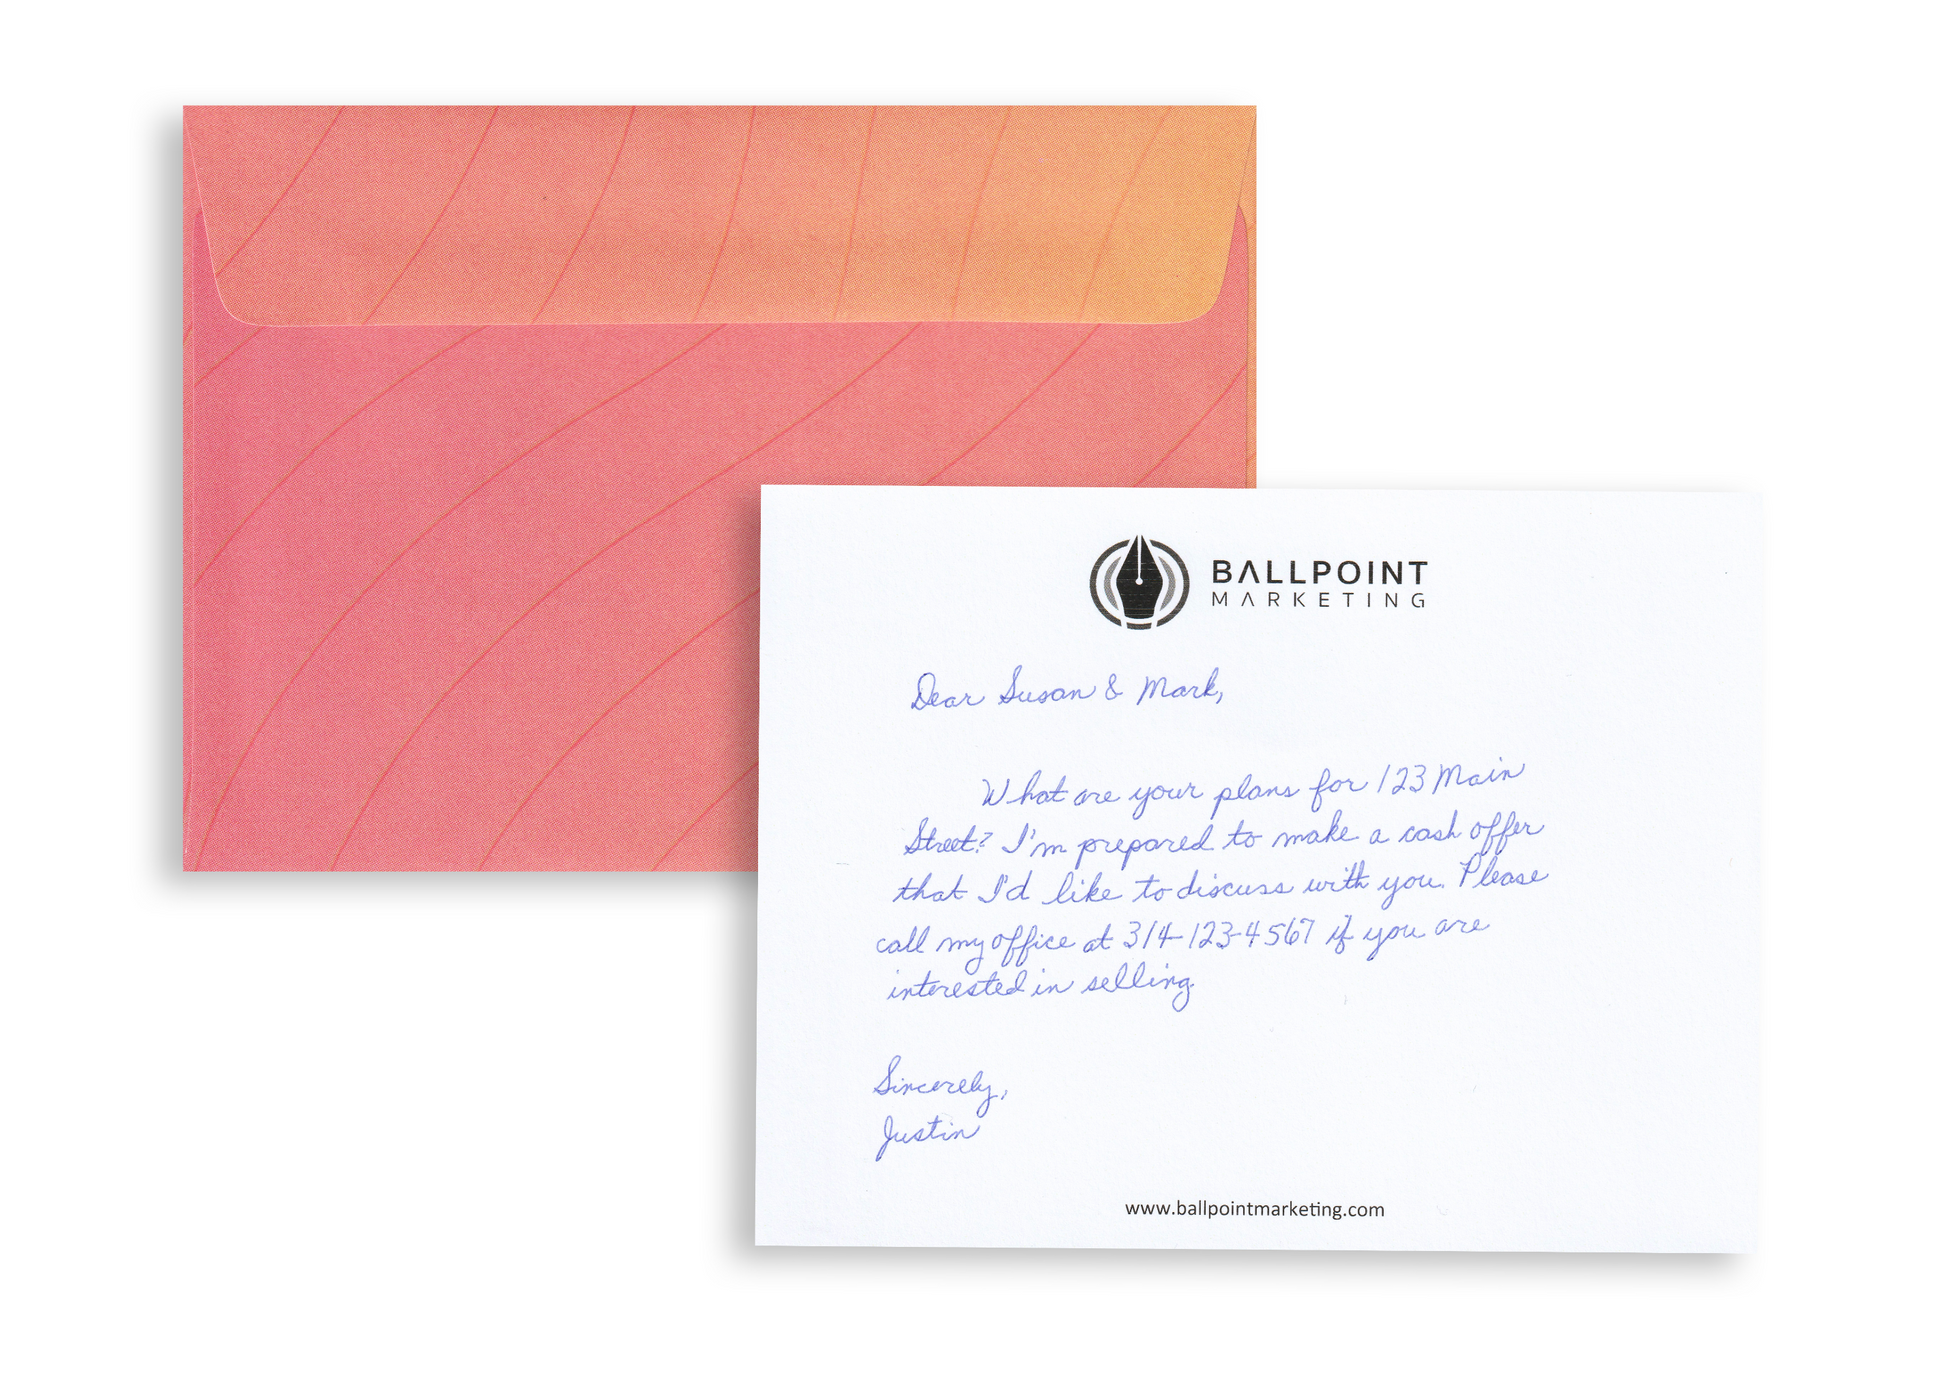 BALLPOINT
MARKETING
Dear Susan & Mark,
What are your plans for 123 Main
Street? I'm prepared to make a cash offer
that I'd like to discuss with you. Please
call my office at 314-123-4567 if you are
interested in selling.
Sincerely,
Justin
www.ballpointmarketing.com